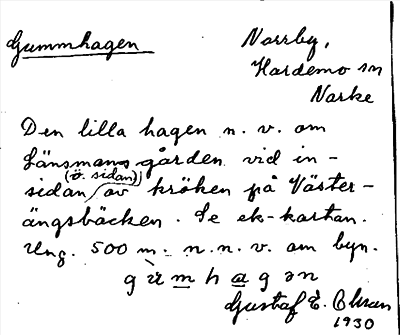 Gummhagen
Norrby,
Hardemo sn
Narke
Den lilla hagen n. v. om
Länsmansgården vid in-
(ö. sidan)
sidan av kröken på Väster-
ängsbäcken. Se ek-kartan.
Ung. 500 m. n. n. v. om byn.
g ù m h a g ən
Gustaf E.
1930